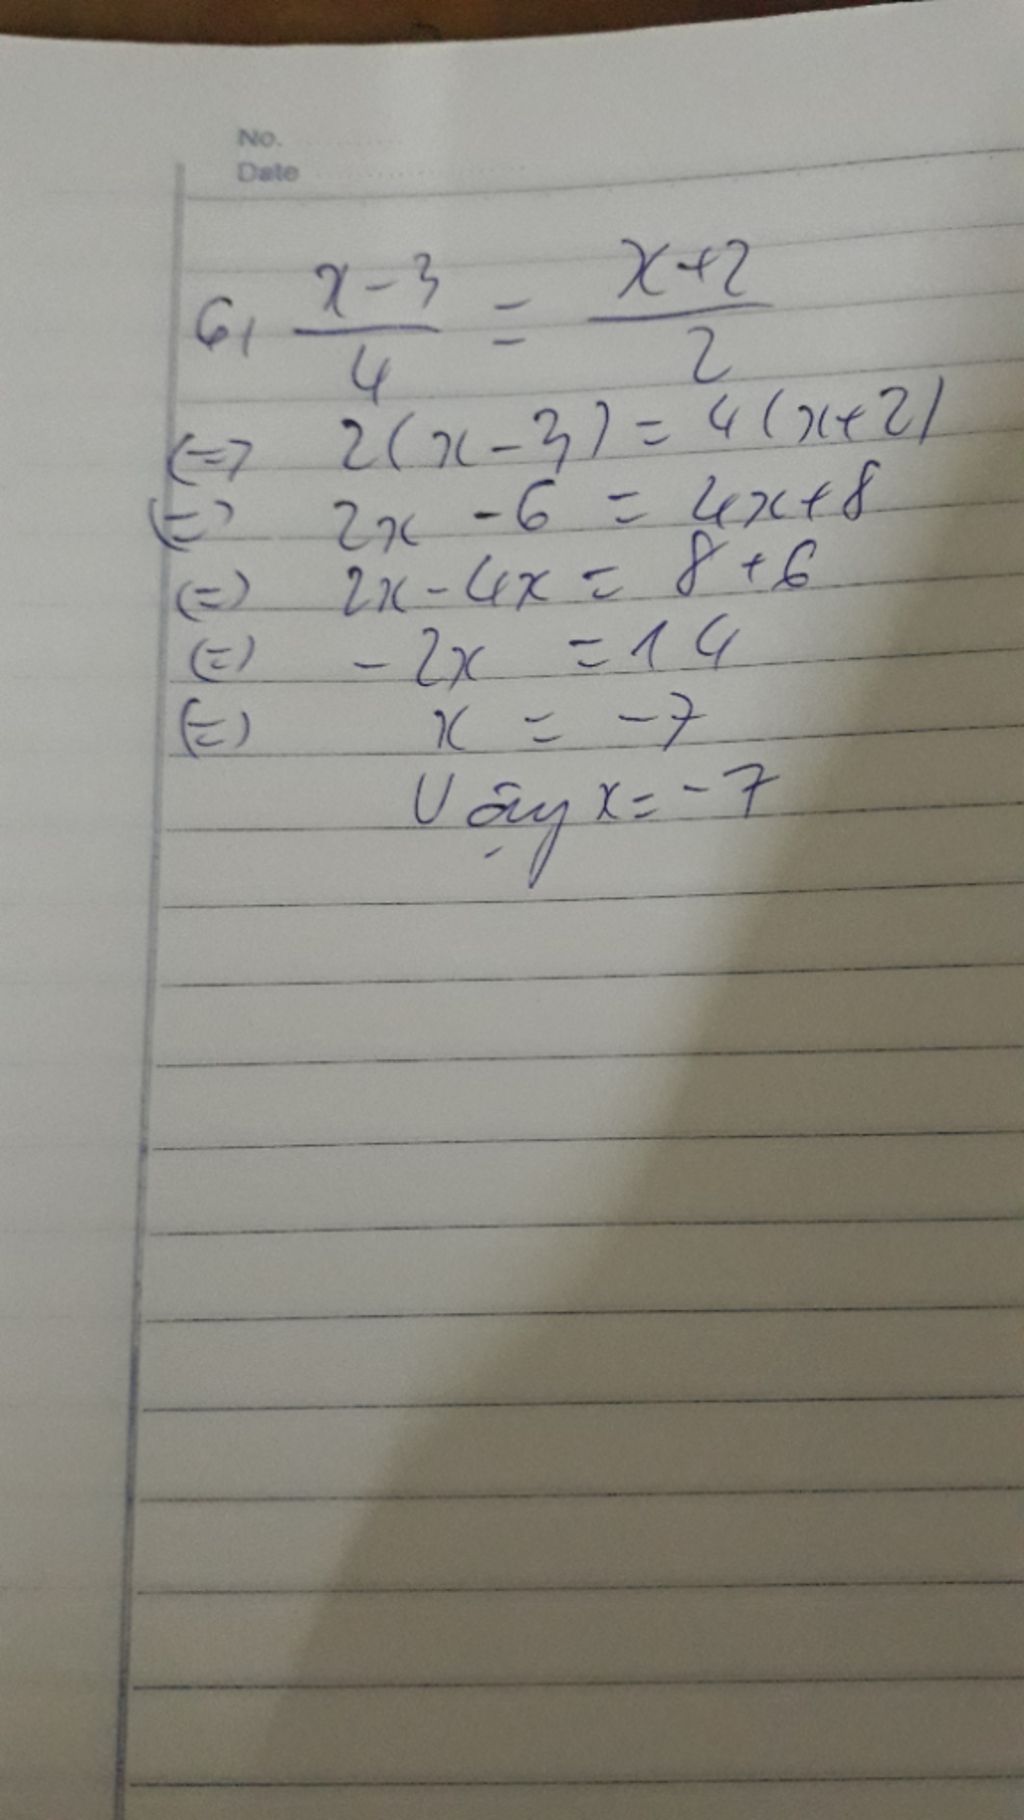 No.
Date
6, x-3/4 = x+2/2
(=) 2(x-3) = 4(x+2)
(=) 2x - 6 = 4x+8
(=) 2x-4x = 8+6
(=) -2x = 14
(=) x = -7
Vậy x = -7